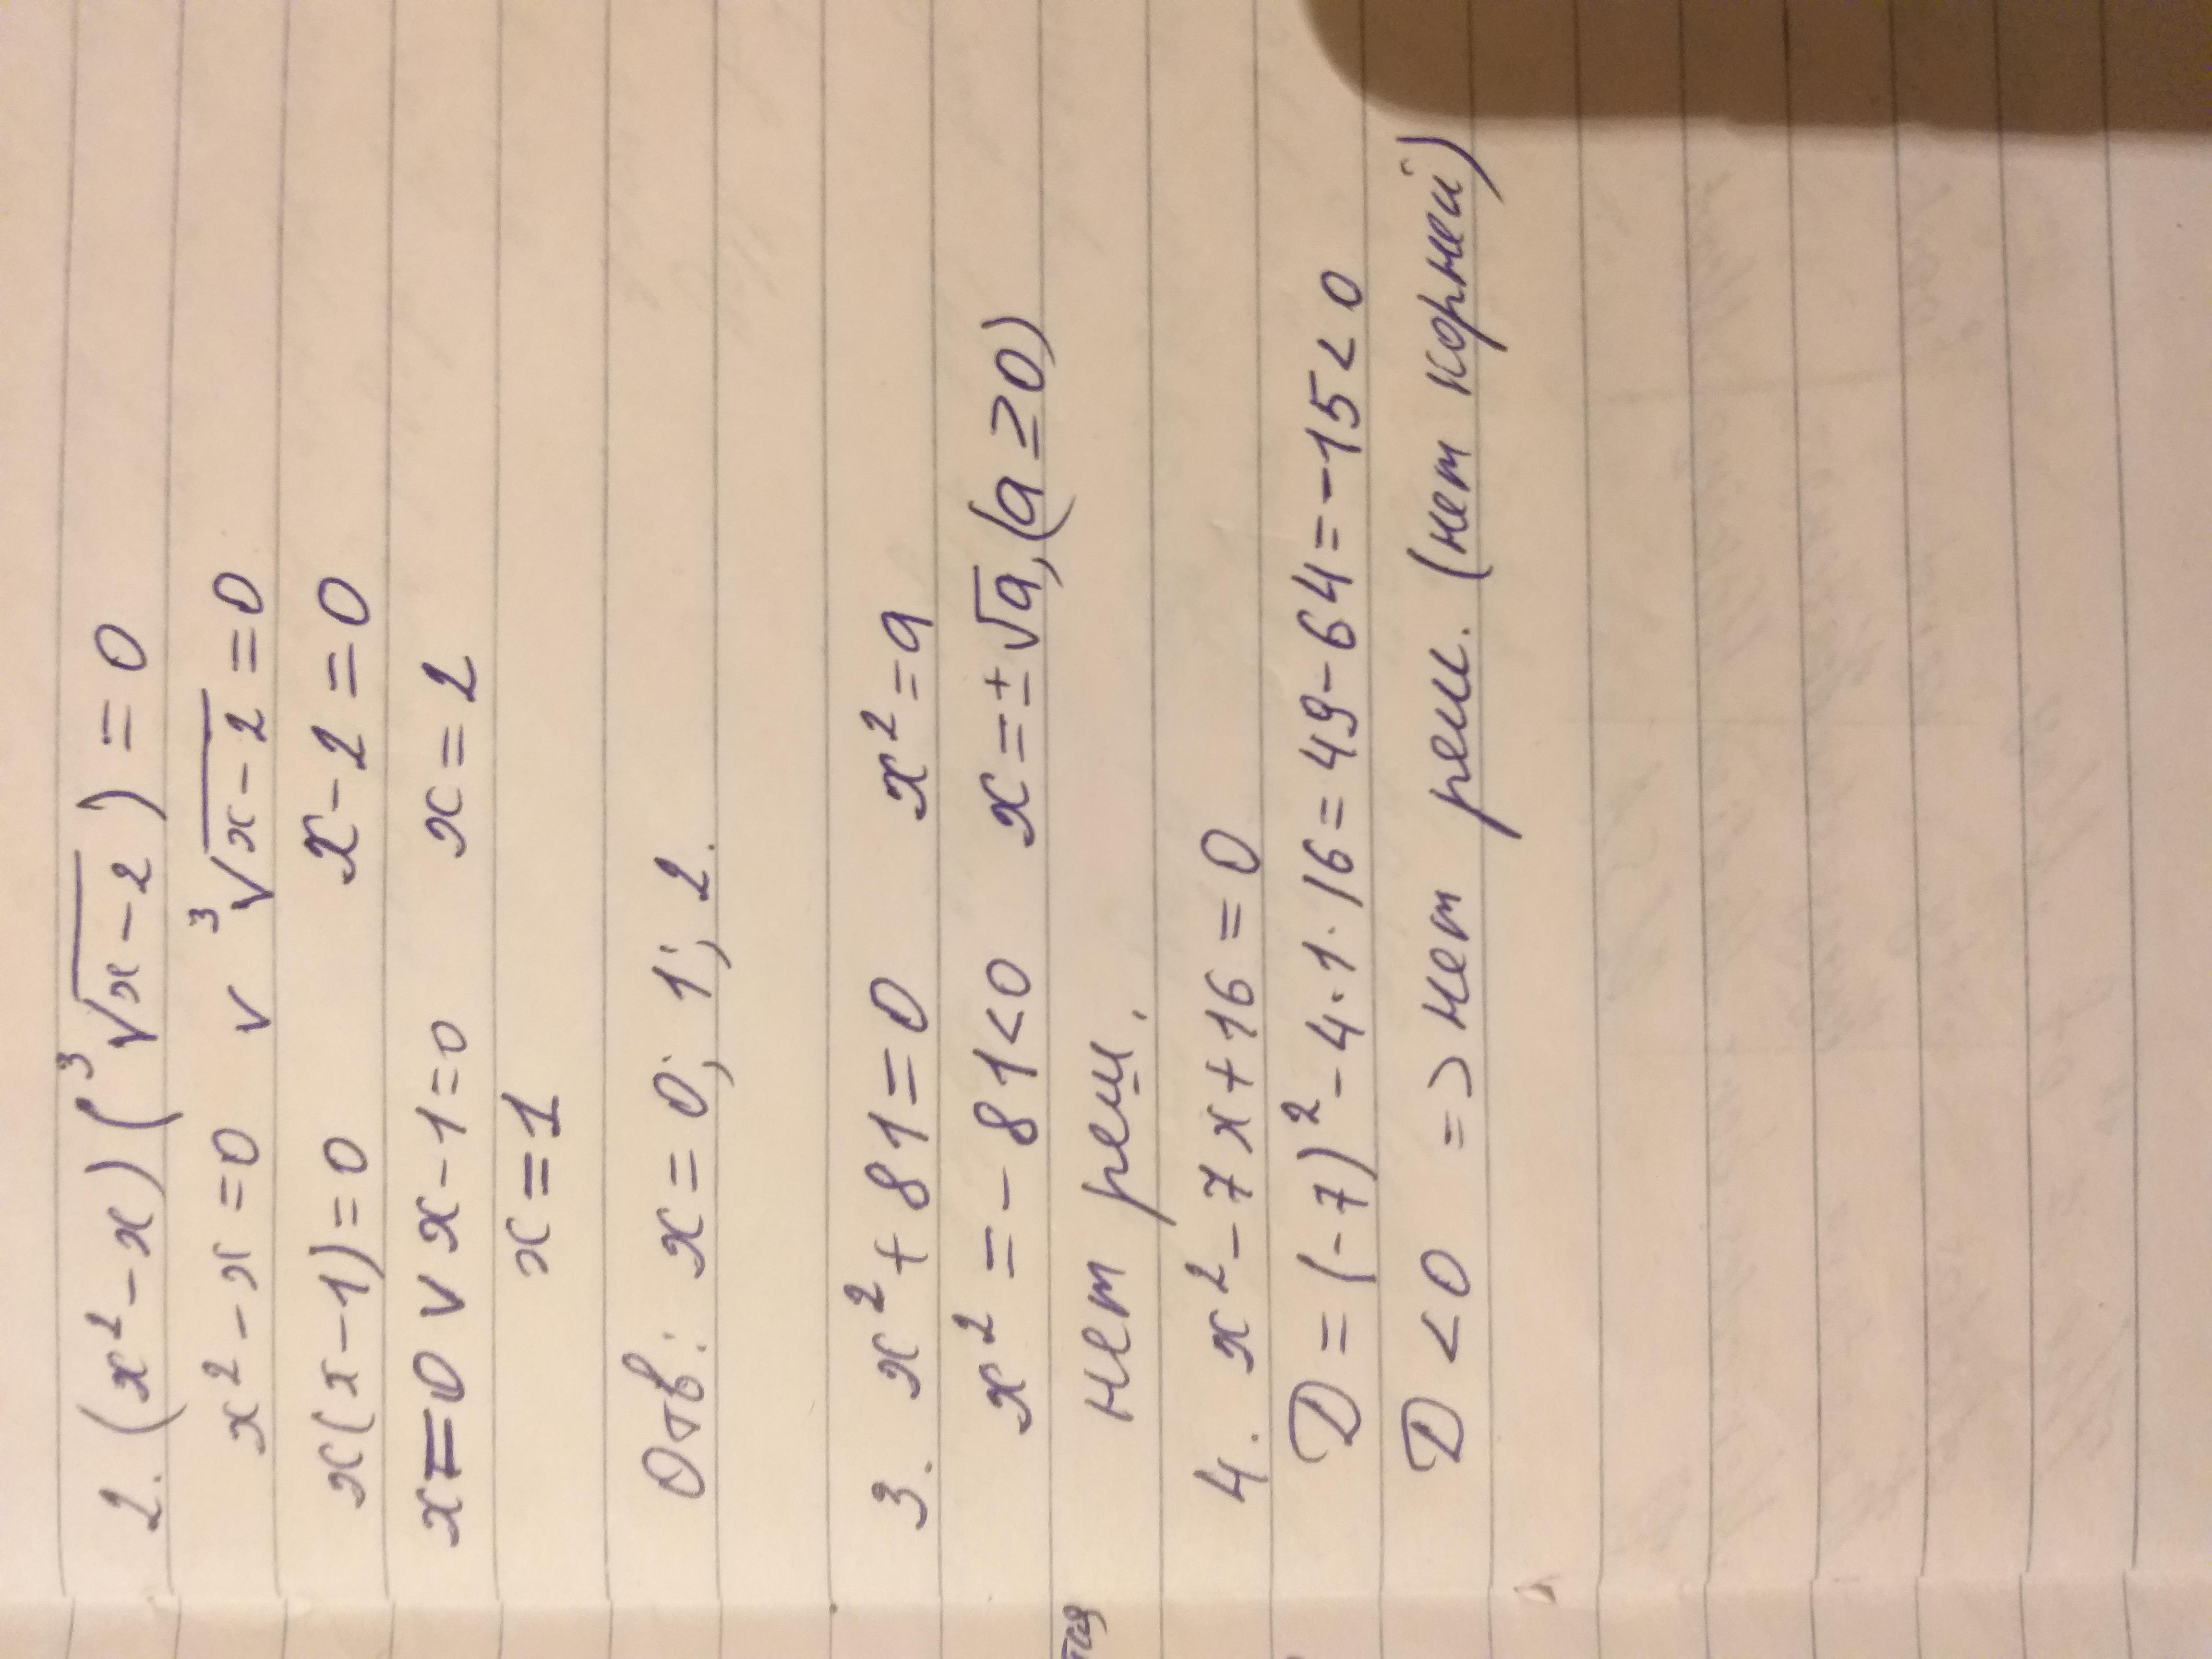 2. (x² - x) (³√x - 2) = 0
x² - x = 0 v ³√x - 2 = 0
x(x - 1) = 0 x - 2 = 0
x = 0 v x - 1 = 0 x = 2
x = 1
Отв: x = 0; 1; 2.
3. x² + 81 = 0 x² = a
x² = - 81 < 0 x = ± √a, (a ≥ 0)
нет реш.
4. x² - 7x + 16 = 0
D = (-7)² - 4·1·16 = 49 - 64 = -15 < 0
D < 0 => нет реш. (нет корней)